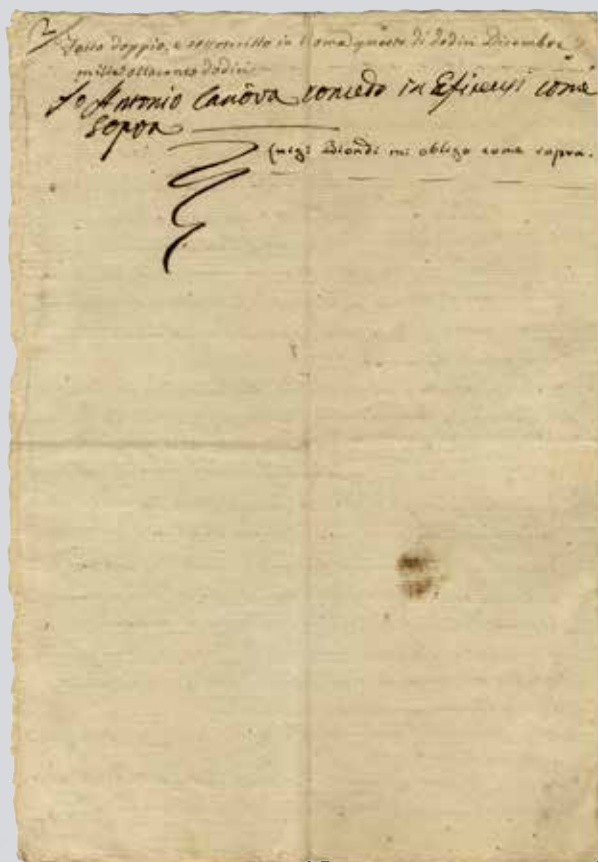 2
Fatto doppio, e sottoscritto in Roma questo dì dodici Dicembre
mille ottocento dodici
Io Antonio Canova concedo in Efiteusi come
sopra
Luigi Biondi mi obbligo come sopra.